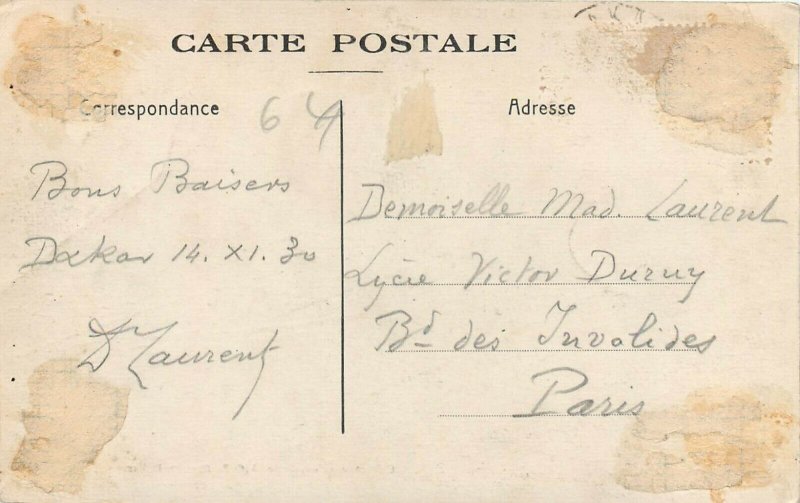 CARTE POSTALE
Correspondance
64
Adresse
Bons Baisers
Dakar 14. XI. 30
D Laurent
Demoiselle Mad. Laurent
Lycée Victor Duruy
Bd des Invalides
Paris